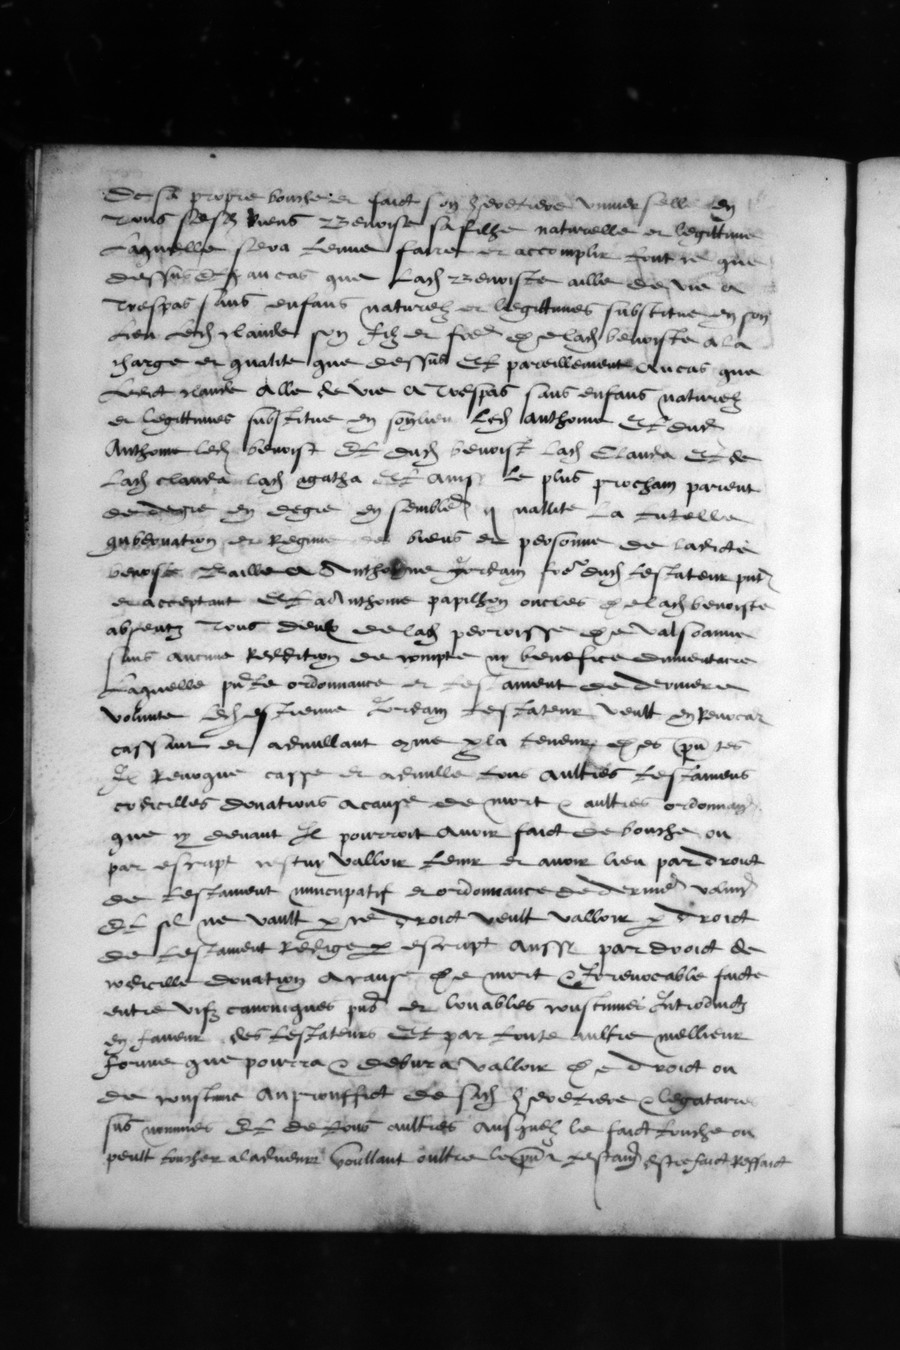 De sa propre bouche et faict son heretiere universelle en
tous sesd biens Benoiste sa filhe naturelle et legittime
Laquelle sera tenue faire et accomplir tout ce que
dessus Et au cas que lad Benoiste aille de vie a
trespas sans enfans naturelz et legittimes substitue en son
lieu led claude son filz et frere de lad benoiste a la
charge et qualite que dessus Et pareillement Au cas que
led claude Alle de vie A trespas sans enfans naturelz
et legittimes substitue en son lieu led Anthoine Et dud
Anthoine led benoist Et dud benoist lad Clauda Et de
lad clauda lad agatha Et Aussi le plus prochain parent
de degre en degre en semble quallite La tutelle
gubernation et Regime des biens et personne de ladicte
benoiste Baille A Anthoine Jordain frere dud testateur pnt
et acceptant Et a Anthoine papilhon oncles de lad benoiste
absentz tous deux de lad perroisse de Valsonne
sans aucune Reddition de compte ny benefice dinventaire
Laquelle pnte ordonnance et testament de derniere
volunte led estienne Jordain testateur veult en Revocant
cassant et adnullant comme par la teneur de ces pntes
Il Revoque casse et adnulle tous aultres testamens
codicilles donations a cause de mort & aultres ordonnances
que cy devant Il pourroit Avoir faict de bouche ou
par escript cestuy valloir tenir et avoir lieu par droict
de testament nuncupatif et ordonnance de derniere volunte
Et sil ne vault par ce droict veult valloir par droict
de testament Redige par escript Aussi par droict de
codicille donation a cause de mort & Irrevocable faicte
entre vifz canoniques pns et louables coustumes Introduictz
en faveur des testateurs Et par toute aultre meilleur
forme que pourra & debvra valloir de droict ou
de coustume Au prouffict de sad heretiere & legataires
sus nommes Et de tous aultres Ausquelz le faict touche ou
peult toucher a ladvenir Voullant oultre le pnt testament estre faict Reffaict